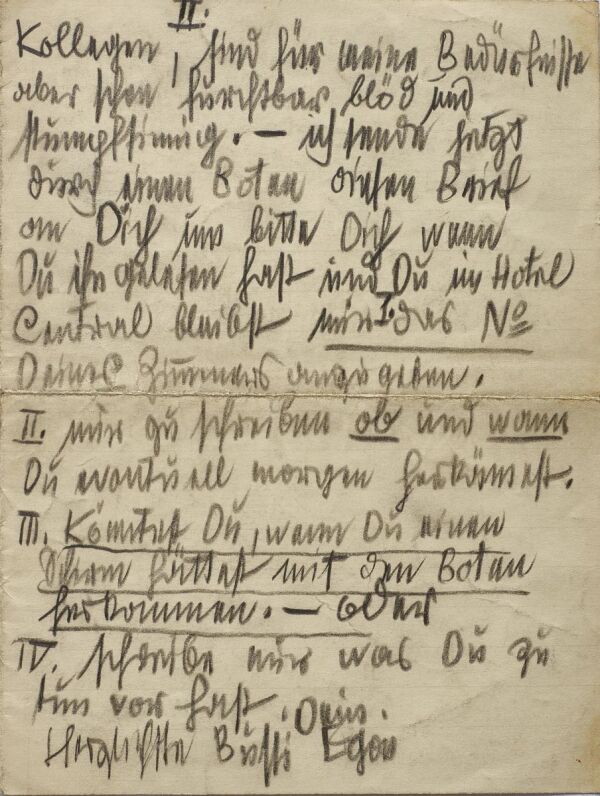 II.
Kollegen, sind für meine Bedürfnisse
aber schon furchtbar blöd und
stumpfsinnig. — ich sende jetzt
durch einen Boten diesen Brief
an Dich und bitte Dich wenn
Du ihn gelesen hast und Du im Hotel
Central bleibst mir I. das No
Deines Zimmers anzugeben.
II. mir zu schreiben ob und wann
Du eventuell morgen herkämest.
III. Kömtest Du, wenn Du einen
Schirm hättest mit den Boten
herkommen. — oder
IV. schreibe mir was Du zu
tun vor hast. Dein.
Herzlichste Bussi Egon